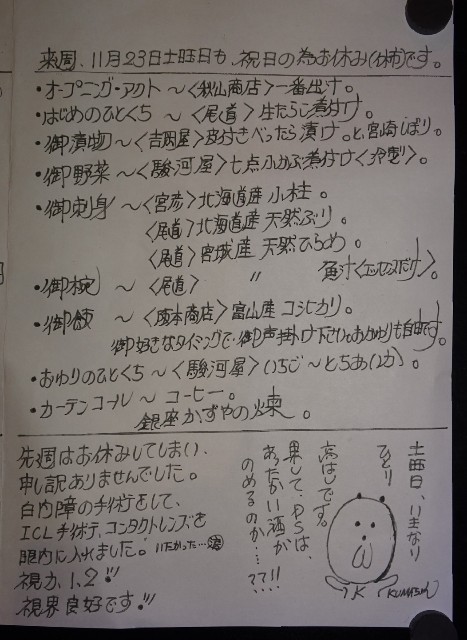 来週、11月23日土旺日も、祝日の為お休み(姉)です。
・オープニング・アクト ～〈秋山商店〉一番出汁。
・はじめのひとくち ～〈尾道〉生たらこ煮付け。
・御漬物 ～〈吉岡屋〉皮付きべったら漬け。と、宮崎しぼり。
・御野菜 ～〈駿河屋〉七点 煮付け
・御刺身 ～〈宮彦〉北海道産 小柱。
〈尾道〉北海道産 天然ぶり。
〈尾道〉宮城産 天然ひらめ。
・御椀 ～〈尾道〉 〃 魚汁〈エッセンスだけ〉。
・御飯 ～〈坂本商店〉富山産 コシヒカリ。
御好きなタイミングで・御声掛け下さい。おかわりも自由です。
・おわりのひとくち ～〈駿河屋〉いちご ～とちあいか。
・カーテンコール ～ コーヒー。
銀座かずやの煉。
土曜日、いきなり
ひとり
高はしです。
果して、P.S.は、
あったかい酒が
のめるのか…??!!
K KUMAちゃん
先週はお休みしてしまい、
申し訳ありませんでした。
白内障の手術をして、
ICL手術デ、コンタクトレンズを
眼内に入れました。いたかった…
視力、1.2!!
視界良好です!!